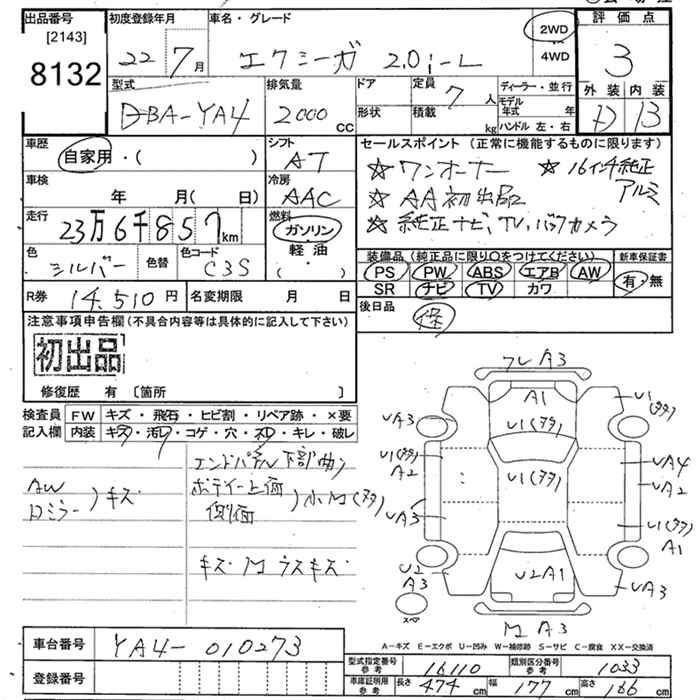 出品番号
[2143]
8132
初度登録年月
22年7月
車名・グレード
エクシーガ 2.0i-L
2WD
4WD
評価点
3
外装 内装
D B
型式
DBA-YA4
排気量
2000 CC
ドア
形状
定員 7 人
積載 kg
ディーラー・並行
モデル年式 年
ハンドル 左・右
車歴
自家用・( )
シフト
AT
セールスポイント (正常に機能するものに限ります)
☆ワンオーナー ☆16インチ純正アルミ
☆AA初出品
☆純正ナビ、TV、バックカメラ
車検
年 月( 日)
冷房
AAC
走行
23万6千857km
燃料
ガソリン
軽油
( ・ )
色
シルバー
色替
色コード
C3S
装備品 (純正品に限り○をつけてください)
PS PW ABS エアB AW
SR ナビ TV カワ
新車保証書
有・無
R券 14,510円
名変期限 月 日
後日品
注意事項申告欄(不具合内容等は具体的に記入して下さい)
初出品
修復歴 有 〔箇所 〕
検査員記入欄
FW キズ・飛石・ヒビ割・リペア跡・×要
内装 キズ・汚レ・コゲ・穴・ネジ・キレ・破レ
エンドパネル下部曲り
AW
Dミラー
)キズ
ボディー上面
側面
)小凹(多タ)
キズ 凹 ウスキズ
フレA3
A1
U1(多タ)
U1(多タ)
UA3
U1(多タ)
A2
UA3
U2
A3
U1(多タ)
UA4
UA2
U1(多タ)
A1
UA3
U2A1
スペア
凹A3
A-キズ E-エクボ U-凹み W-補修跡 S-サビ C-腐食 XX-交換済
車台番号 YA4-010273
登録番号
型式指定番号参考 16110
類別区分番号参考 1033
車庫証明用参考 長さ 474cm 幅 177cm 高さ 166cm